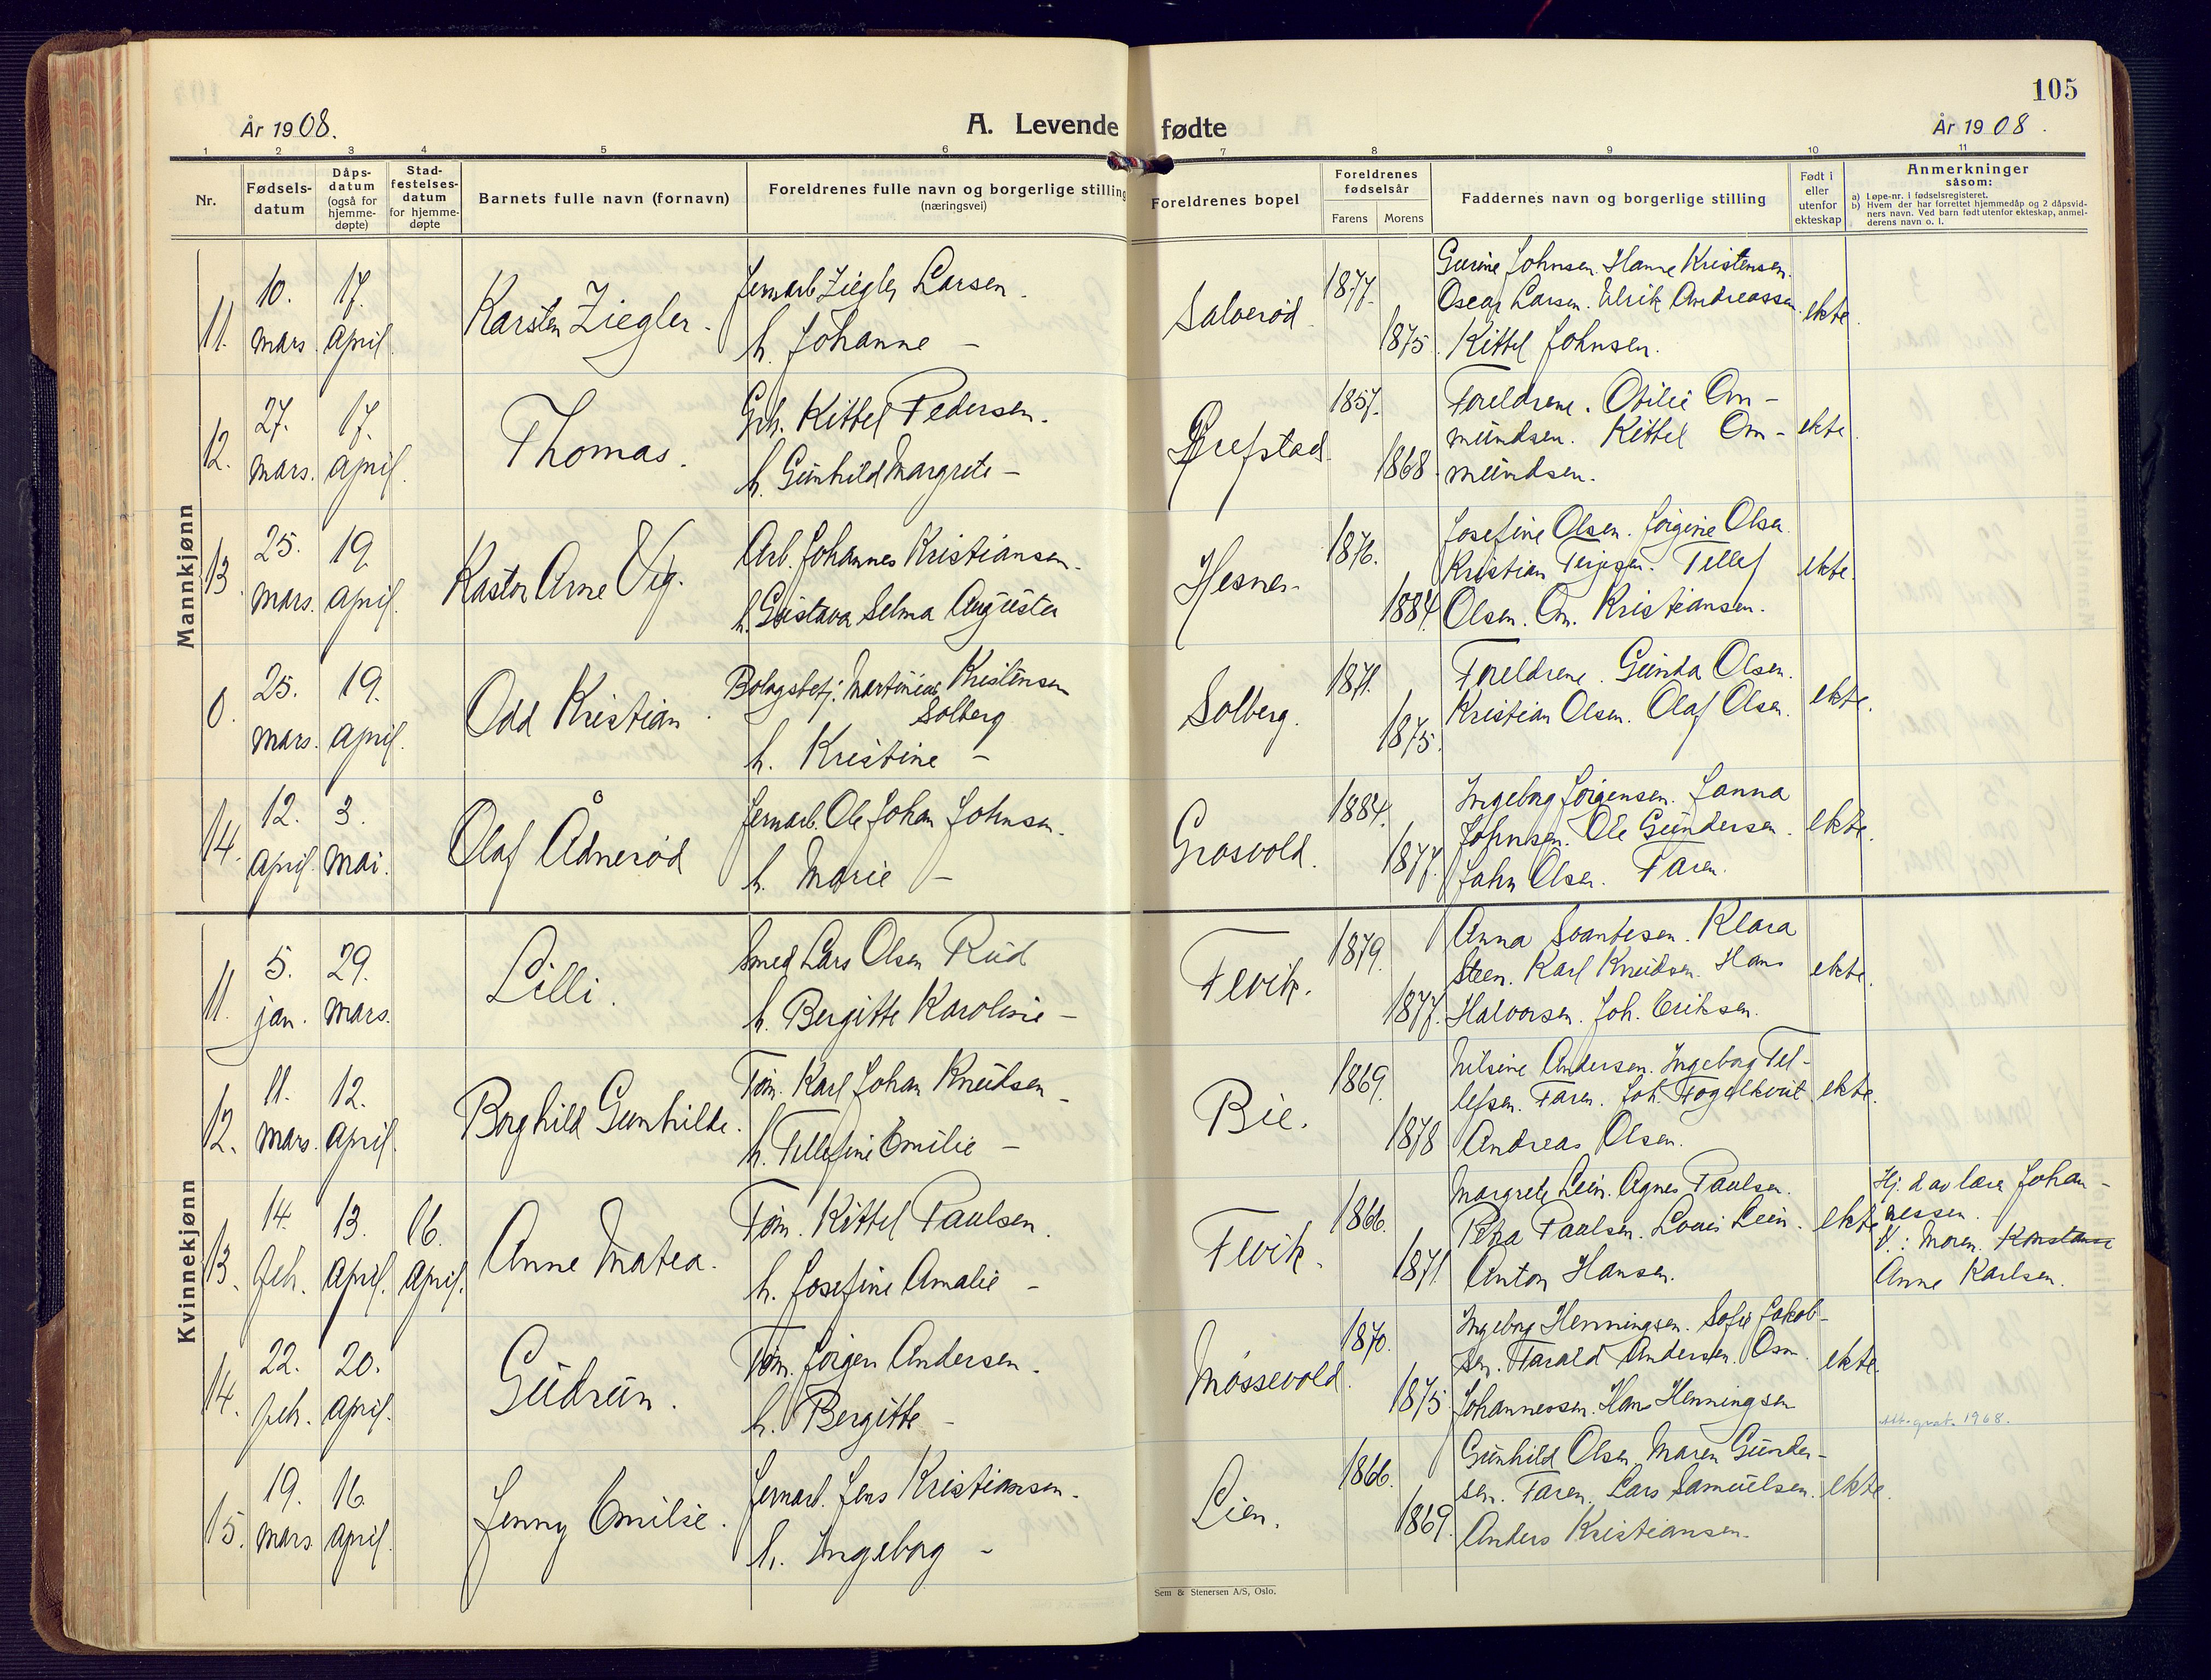 105
År 1908.
A. Levende fødte
År 1908.
1 2 3 4 5 6 7 8 9 10 11
Nr.
Fødsels-
datum
Dåps-
datum
(også for
hjemme-
døpte)
Stad-
festelses-
datum
for hjemme-
døpte
Barnets fulle navn (fornavn)
Foreldrenes fulle navn og borgerlige stilling
(næringsvei)
Foreldrenes bopel
Foreldrenes
fødselsår
Farens Morens
Faddernes navn og borgerlige stilling
Født i
eller
utenfor
ekteskap
Anmerkninger
såsom:
a) Løpe-nr. i fødselsregisteret.
b) Hvem der har forrettet hjemmedåp og 2 dåpsvid-
ners navn. Ved barn født utenfor ekteskap, anmel-
derens navn o. l.
Mannkjønn
11. 10. mars. 17. april.
Karsten Ziegler.
Jernarb. Ziegler Larsen.
h. Johanne –
Salverød
1877.
1875.
Gurine Johnsen. Hanne Kristensen.
Oscar Larsen. Ulrik Andreassen.
Kittel Johnsen.
ekte.
12. 27. mars. 17. april.
Thomas.
Grh. Kittel Pedersen.
h. Gunhild Margrete –
1857.
1868.
Foreldrene. Otilie Om-
mundsen. Kittel Om-
mundsen.
ekte.
13. 25. mars. 19. april.
Kastor Arne Vig.
Arb. Johannes Kristiansen.
h. Gustava Selma Augusta
Hesnes.
1876.
1884.
Josefine Olsen. Jørgine Olsen.
Kristian Terjesen. Tellef
Olsen. Om. Kristiansen.
ekte.
0. 25. mars. 19. april.
Odd Kristian.
Martinius Kristensen
Solberg
h. Kristine –
Solberg.
1871.
1875.
Foreldrene. Gunda Olsen.
Kristian Olsen. Olaf Olsen.
ekte.
14. 12. april. 3. mai.
Olaf Ådnerød
Jernarb. Ole Johan Johnsen.
h. Marie –
Grosvold.
1884.
1877.
Ingeborg Jørgensen. Janna
Johnsen. Ole Gundersen.
John Olsen. Faren.
ekte.
Kvinnekjønn
11. 5. jan. 29. mars.
Lilli.
Smed Lars Olsen Rud
h. Bergitte Karoline –
Fevik.
1879.
1877.
Anna Svantesen. Klara
Steen. Karl Knudsen. Hans
Halvorsen. Joh. Eriksen.
ekte.
12. 11. mars. 12. april.
Borghild Gunhilde.
Tøm. Karl Johan Knudsen
h. Tellefine Emilie –
Bie.
1869.
1878
Nilsine Andersen. Ingeborg Tel-
lefsen. Faren. Joh. Fogelkvit
Andreas Olsen.
ekte.
13. 14. feb. 13. april. 16. april.
Anne Matea.
Tøm. Kittel Paulsen.
h. Josefine Amalie –
Fevik.
1866.
1871
Margrete Lein. Agnes Paulsen.
Petra Paulsen. Louis Lein.
Anton Hansen.
ekte
Hj. d av lærer Johan-
nessen.
V.: Moren. Konstanse
Anne Karlsen.
14. 22. feb. 20. april.
Gudrun.
Tøm. Jørgen Andersen.
h. Bergitte –
Mossevold.
1870.
1875
Ingeborg Henningsen. Sofie Jakob-
sen. Tarald Andersen. Osm.
Johannessen. Hans Henningsen
ekte.
1968.
15. 19. mars. 16. april.
Jenny Emilie.
Jernarb. Jens Kristiansen.
h. Ingeborg –
Lien.
1866.
1869.
Gunhild Olsen. Maren Gunder-
sen. Faren. Lars Samuelsen.
Anders Kristiansen.
ekte.
Sem & Stenersen A/S, Oslo.